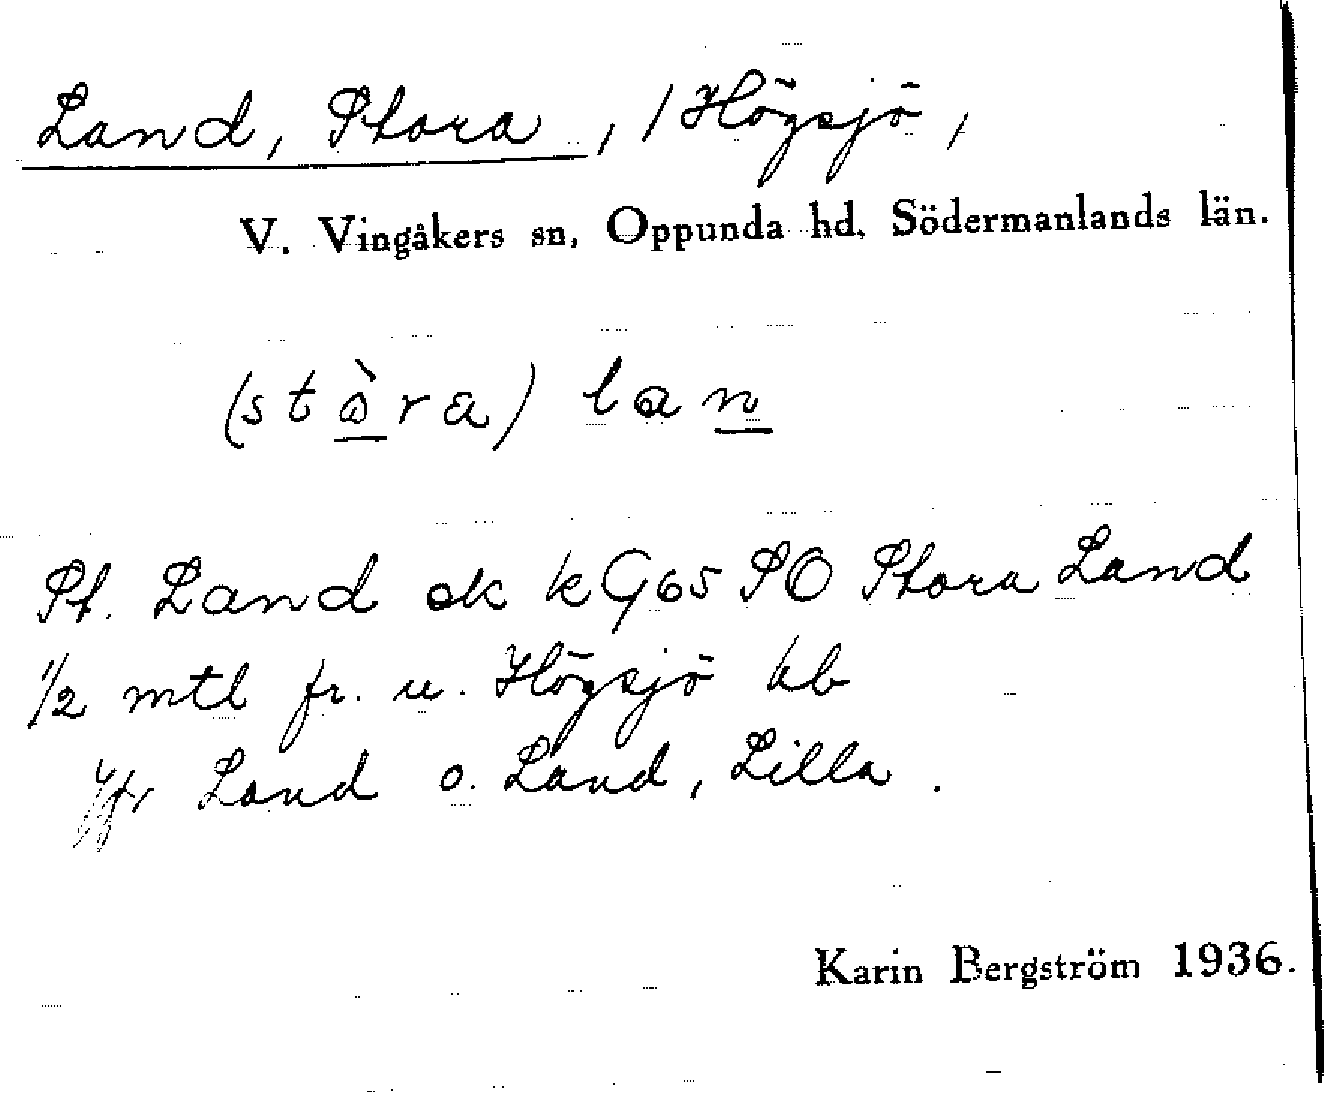 Land, Stora, / Högsjö /
V. Vingåkers sn, Oppunda hd, Södermanlands län.
(stòra) lan
St. Land ek kG65 SO Stora Land
1/2 mtl fr. u. Högsjö hb
Jfr Land o. Land, Lilla.
Karin Bergström 1936.